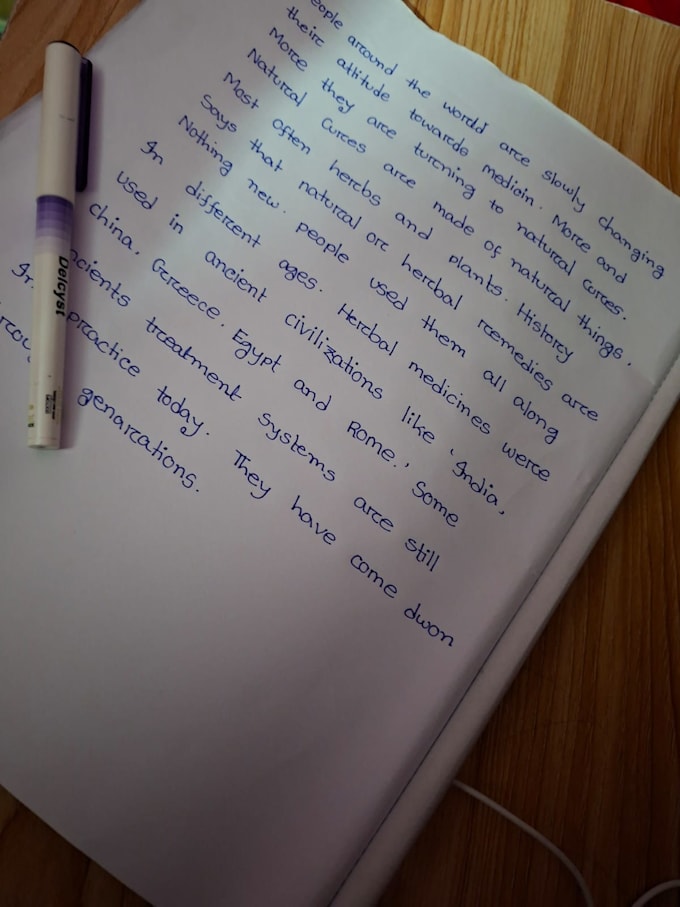 eople around the world are slowly changing
their attitude towards medicin. More and
More they are turning to natural cures.
Natural Cures are made of natural things.
Most often herbs and plants. History
Says that natural or herbal remedies are
Nothing new. people used them all along
In different ages. Herbal medicines were
used in ancient civilizations like 'India,
china, Greece. Egypt and Rome.' Some
ncients treatment systems are still
In practice today. They have come dwon
genarations.
Delcyst